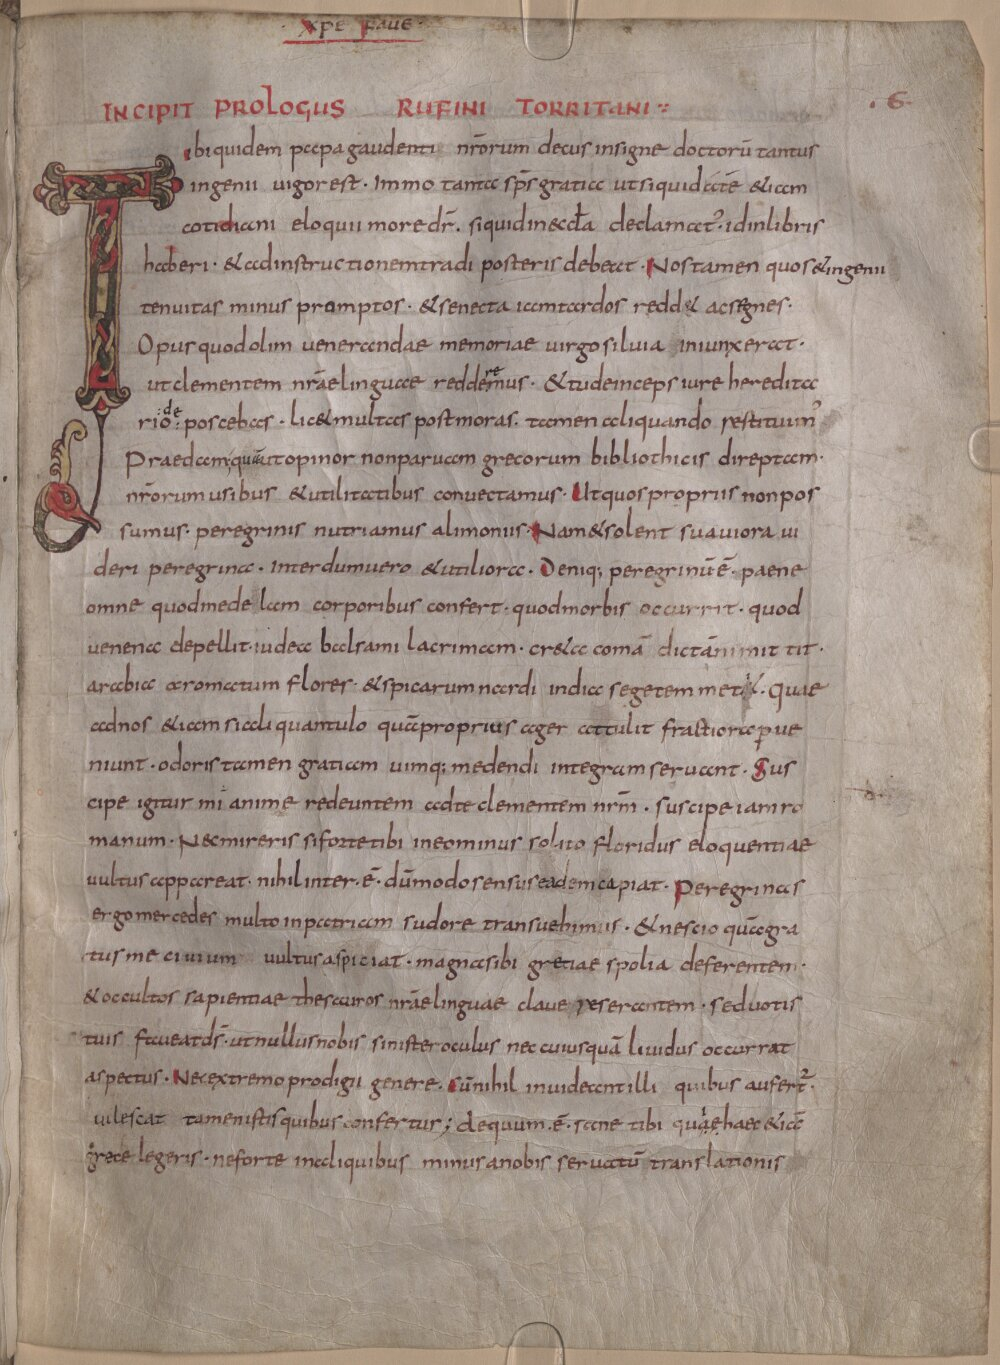 xpe faue
INCIPIT PROLOGUS RUFINI TORRITANI
.6.
Tibi quidem papa gaudenti nr̄orum decus insigne doctorū tantus
ingenii uigor est · Immo tanta sp̄s gratia ut siquid &iam
cotidiani eloquii more dr̄ . siquid in declamat̉ · id in libris
haberi · & ad instructionem tradi posteris debeat · Nos tamen quos & ingenii
tenuitas minus promptos · & senecta iam tardos redd& ac segnes ·
Opus quod olim uenerandae memoriae uirgo siluia iniunxerat ·
ut clementem nr̄ae linguae redderemus · & tu deinceps iure heredita
rio deposcebas · lic& multas post moras · tamen aliquando restituim̉
Praedam ut opinor non paruam grecorum bibliothicis direptam ·
nr̄orum usibus & utilitatibus conuectamus · Ut quos propriis non pos
sumus · peregrinis nutriamus alimoniis · Nam & solent suauiora ui
deri peregrina · Interdum uero & utiliora · Deniq; peregrinū ē · paene
omne quod medelam corporibus confert · quod morbis occurrit · quod
uenena depellit · iudea balsami lacrimam · cr&a comā dictāni mittit ·
arabia aromatum flores · & spicarum nardi india segetem met& · Quae
ad nos &iam si aliquantulo quā proprius ager attulit fractiora perue
niunt · odoris tamen gratiam uimq; medendi integram seruant · Sus
cipe igitur mi anime redeuntem ad te clementem nr̄m · suscipe iam ro
manum · Nec mireris si forte tibi in eo minus solito floridus eloquentiae
uultus appareat · nihil inter · ē · dūmodo sensus eadem capiat · Peregrinas
ergo mercedes multo in patriam sudore transuehimus · & nescio quā gra
tus me ciuium uultus aspiciat · magna sibi gretiae spolia deferentem ·
& occultos sapientiae thesauros nr̄ae linguae claue reserantem · sed uotis
tuis faueat d̄s · ut nullus nobis sinister oculus nec cuiusquā liuidus occurrat
aspectus · Ne extremo prodigii genere · cū nihil inuideant illi quibus aufert̉ ·
uilescat tamen istis quibus confertur ; aequum · ē · sane tibi qui haec &iā
grece legeris · ne forte in aliquibus minus a nobis seruatū translationis